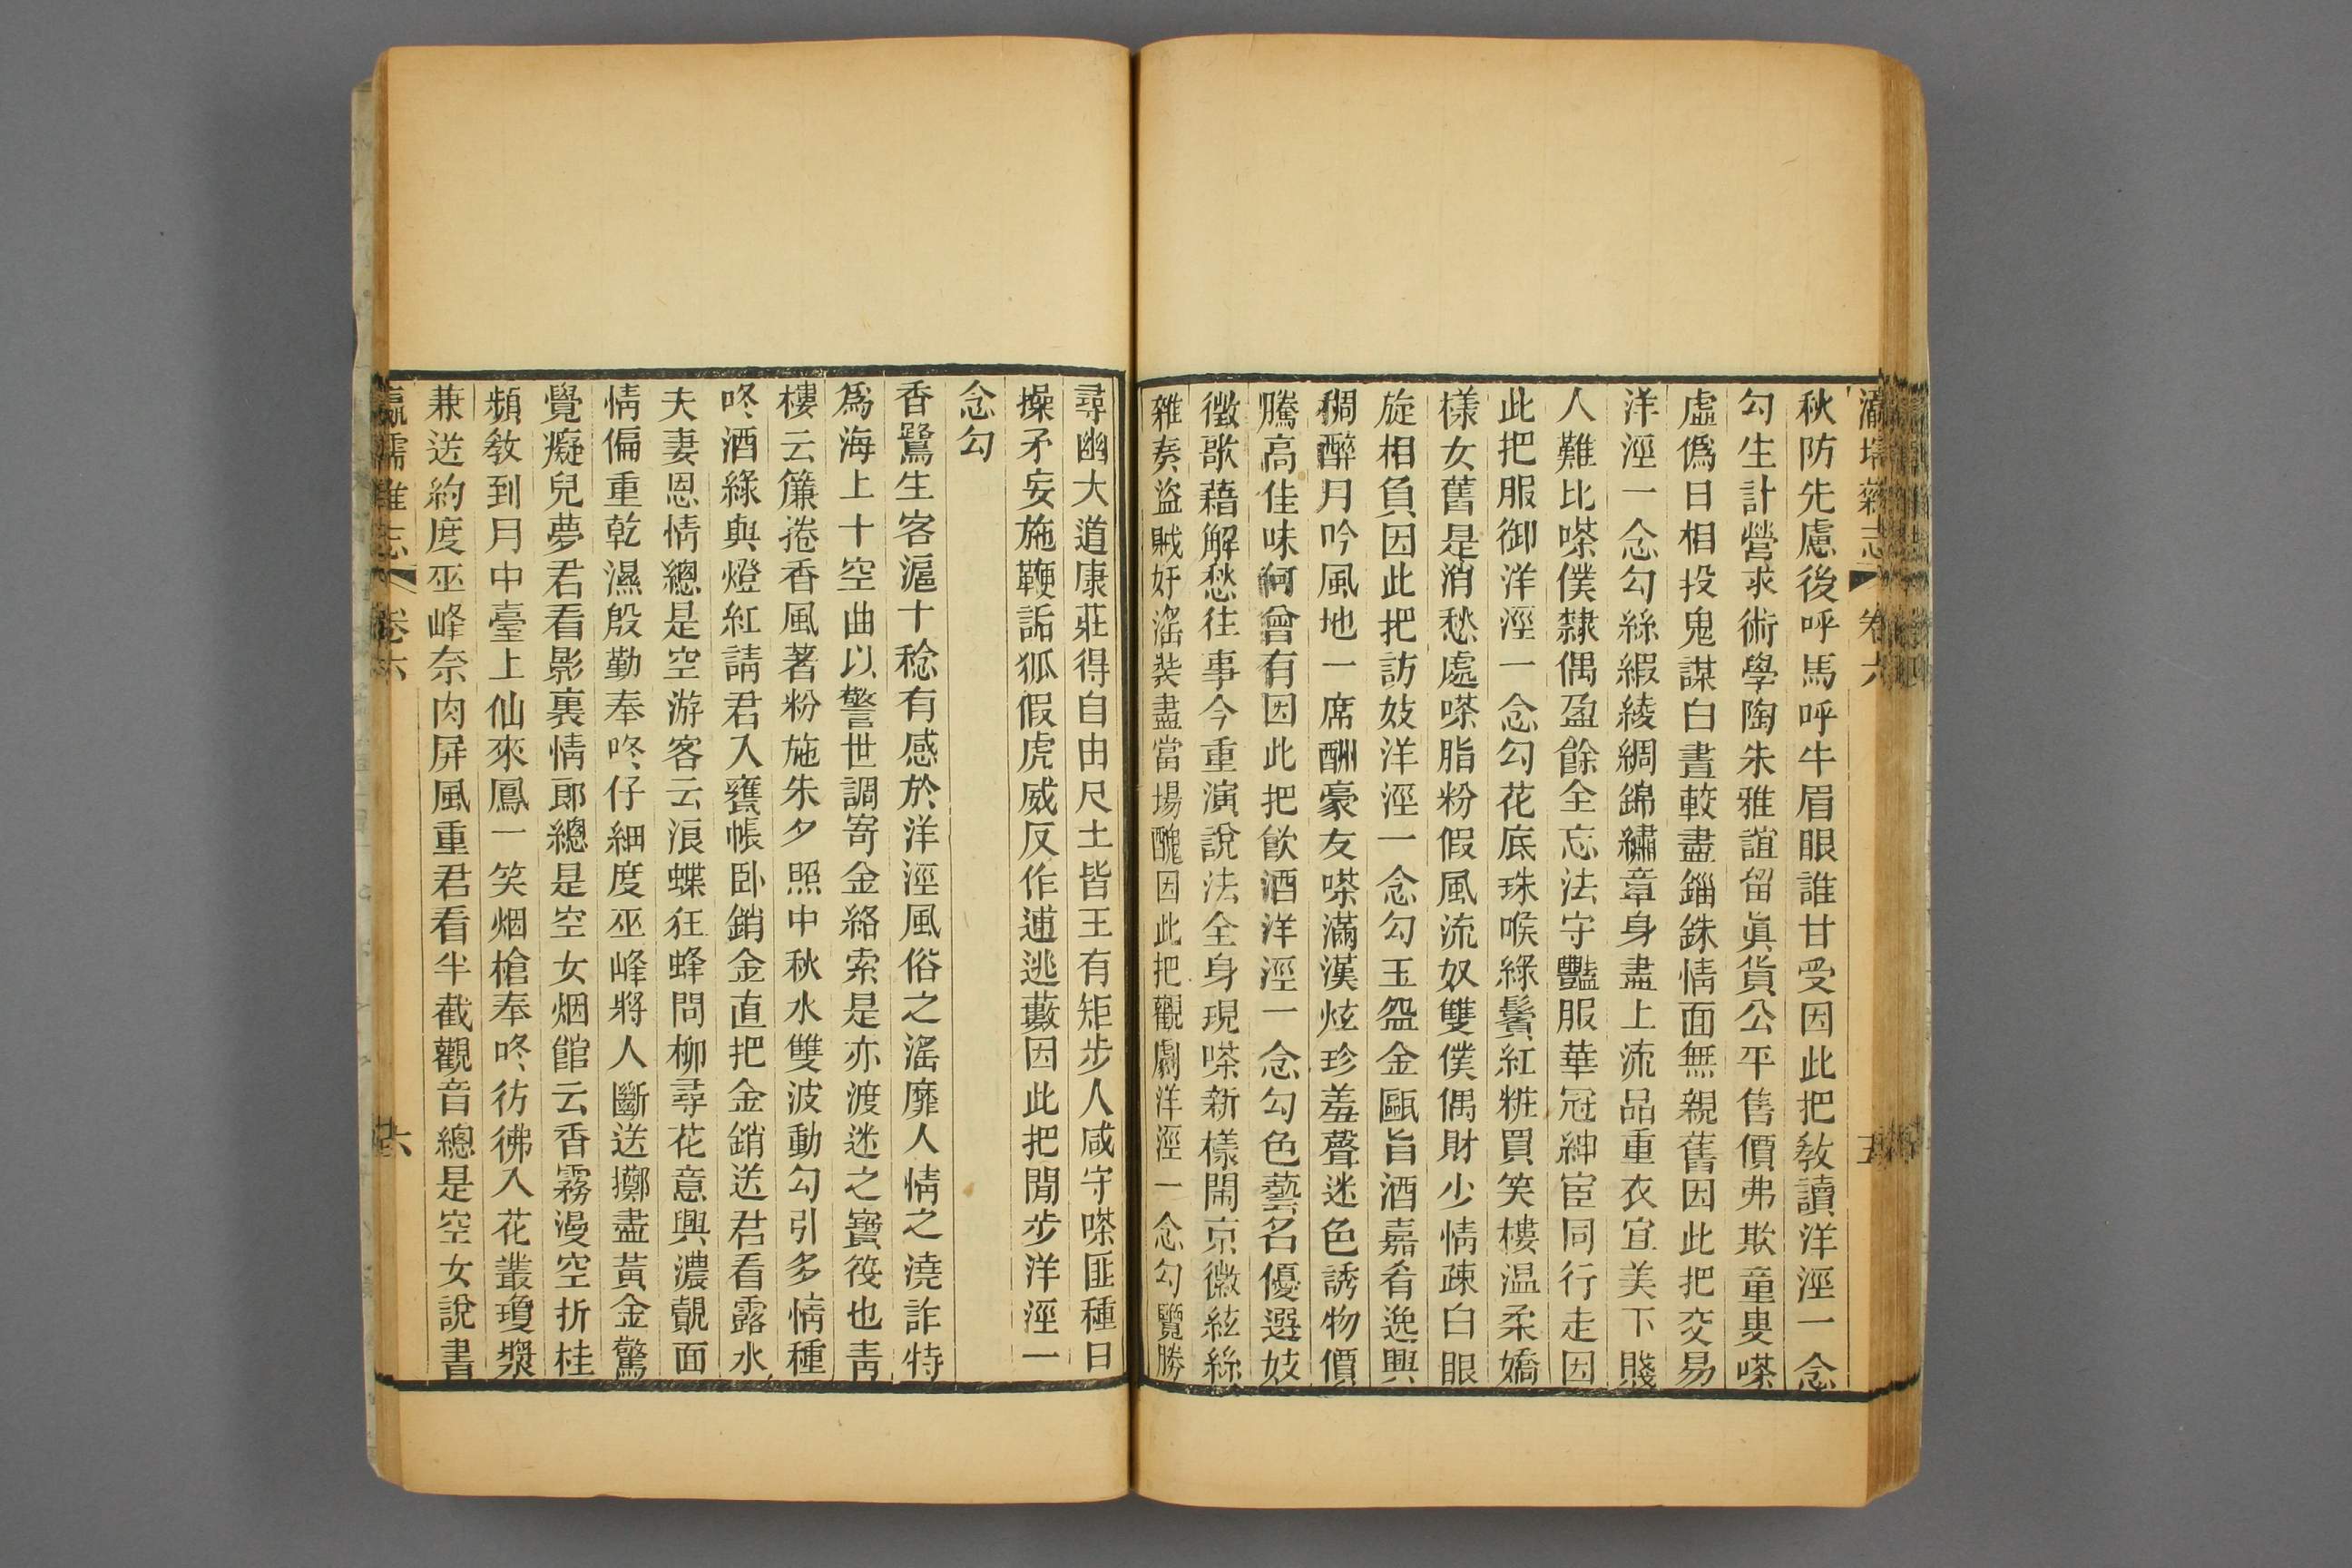 瀛壖雜志 卷六 五
秋防先慮後呼馬呼牛眉眼誰甘受因此把敎讀洋涇一念
勾生計營求術學陶朱雅誼留眞貨公平售價弗欺童叟嗏
虛僞日相投鬼謀白晝較盡錙銖情面無親舊因此把交易
洋涇一念勾絲緞綾綢錦繡章身盡上流品重衣宜美下賤
人難比嗏僕隸偶盈餘全忘法守豔服華冠紳宦同行走因
此把服御洋涇一念勾花底珠喉綠鬢紅粧買笑樓温柔嬌
樣女舊是消愁處嗏脂粉假風流奴雙僕偶財少情疎白眼
旋相負因此把訪妓洋涇一念勾玉盌金甌旨酒嘉肴逸興
稠醉月吟風地一席酬豪友嗏滿漢炫珍羞聲迷色誘物價
騰高佳味何曾有因此把飮酒洋涇一念勾色藝名優選妓
徵歌藉解愁往事今重演說法全身現嗏新樣鬧京徽絃絲
雜奏盜賊奸滛裝盡當場醜因此把觀劇洋涇一念勾覽勝
尋幽大道康莊得自由尺土皆王有矩步人咸守嗏匪種日
操矛妄施鞭詬狐假虎威反作逋逃藪因此把閒步洋涇一
念勾
香鷺生客滬十稔有感於洋涇風俗之滛靡人情之澆詐特
爲海上十空曲以警世調寄金絡索是亦渡迷之寶筏也靑
樓云簾捲香風著粉施朱夕照中秋水雙波動勾引多情種
咚酒綠與燈紅請君入甕帳卧銷金直把金銷送君看露水
夫妻恩情總是空游客云浪蝶狂蜂問柳尋花意興濃覿面
情偏重乾濕殷勤奉咚仔細度巫峰將人斷送擲盡黃金驚
覺癡兒夢君看影裏情郎總是空女烟館云香霧漫空折桂
頻敎到月中臺上仙來鳳一笑烟槍奉咚彷彿入花叢瓊漿
兼送約度巫峰奈肉屏風重君看半截觀音總是空女說書
瀛壖雜志 卷六 六